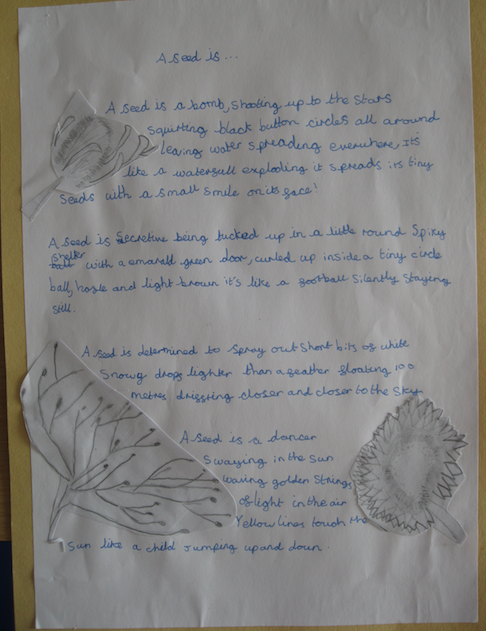 A seed is...
A seed is a bomb, shooting up to the stars
squirting black button circles all around
leaving water spreading everwhere, It's
like a waterfall exploding it spreads its tiny
seeds with a small smile on its face!
A seed is secretive being tucked up in a little round spiky
shelter with a emarald green door, curled up inside a tiny circle
ball, hazle and light brown it's like a football silently staying
still.
A seed is determined to spray out short bits of white
snowy drops lighter than a feather floating 100
metres drifting closer and closer to the sky.
A seed is a dancer
Swaying in the sun
waving golden strings
of light in the air
Yellow lines touch the
sun like a child jumping up and down.